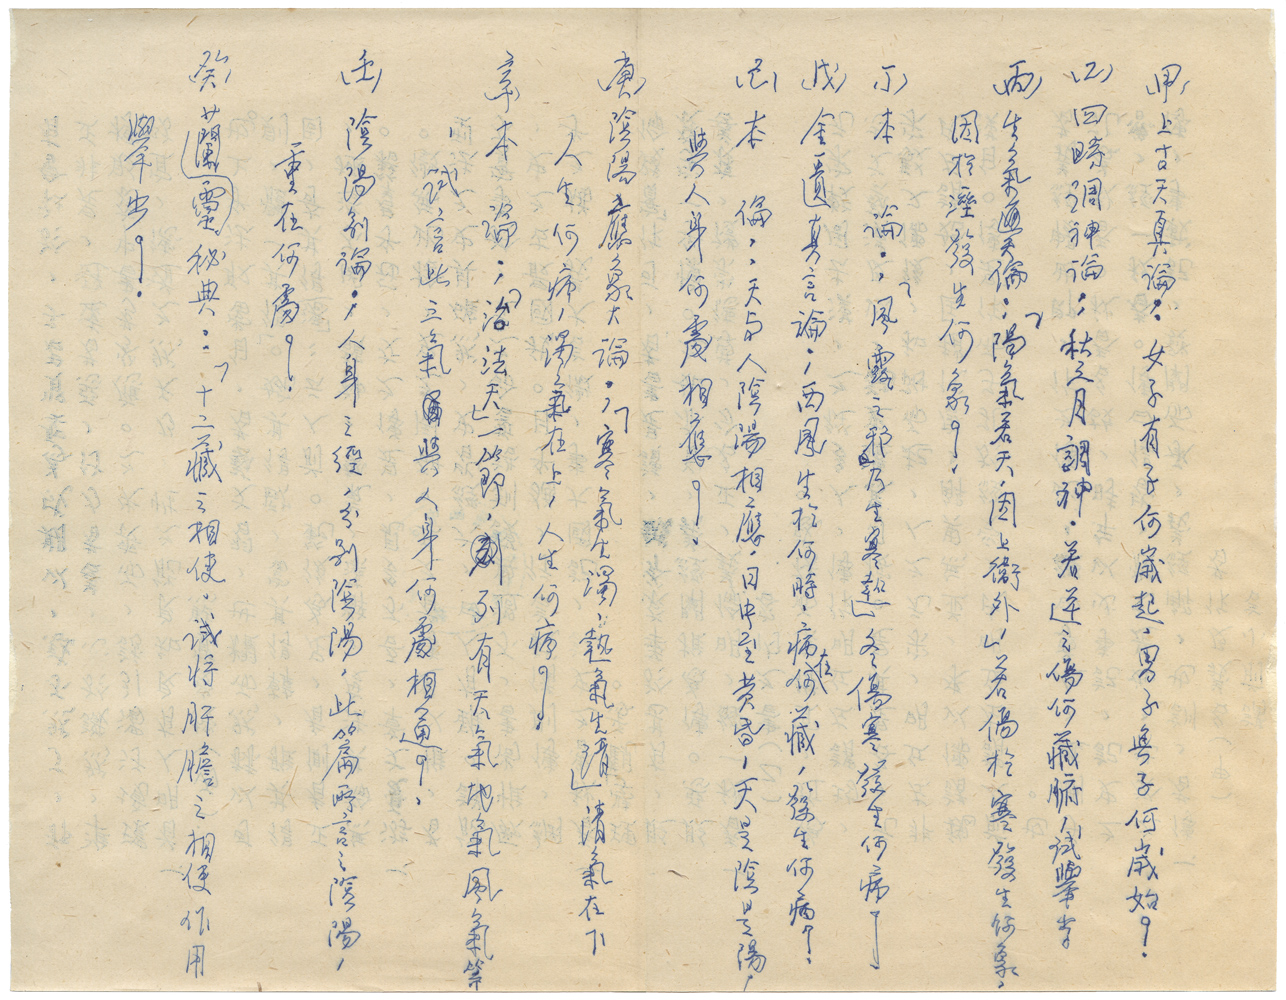 甲、上古天真論：女子有子何歲起，男子與子何歲始？
乙、四時調神論：秋之月調神，若逆之傷何藏腑，試舉出
丙、生氣通天論：「陽氣若天，因上衛外」，若傷於寒發生何象，
因於溼發生何象？
丁、本　論：「風露之邪，乃生寒起」冬傷寒發生何病？
戊、金匱真言論，西風生於何時，病在何藏，發生何病？
己、本　論，天与人陰陽相應，日中至黃昏，天是陰是陽，
與人身何處相應？
庚、陰陽應象大論，「寒氣生濁，熱氣生清」清氣在下
人生何病，濁氣在上，人生何病？
辛、本　論：「治法天」一節，列有天氣地氣風氣等
試言此三氣與人身何處相通？
壬、陰陽別論，人身之經分別陰陽，此篇所言之陰陽，
重在何處？
癸、蘭靈秘典：「十二藏之相使，試將肝膽之相使作用
舉出？